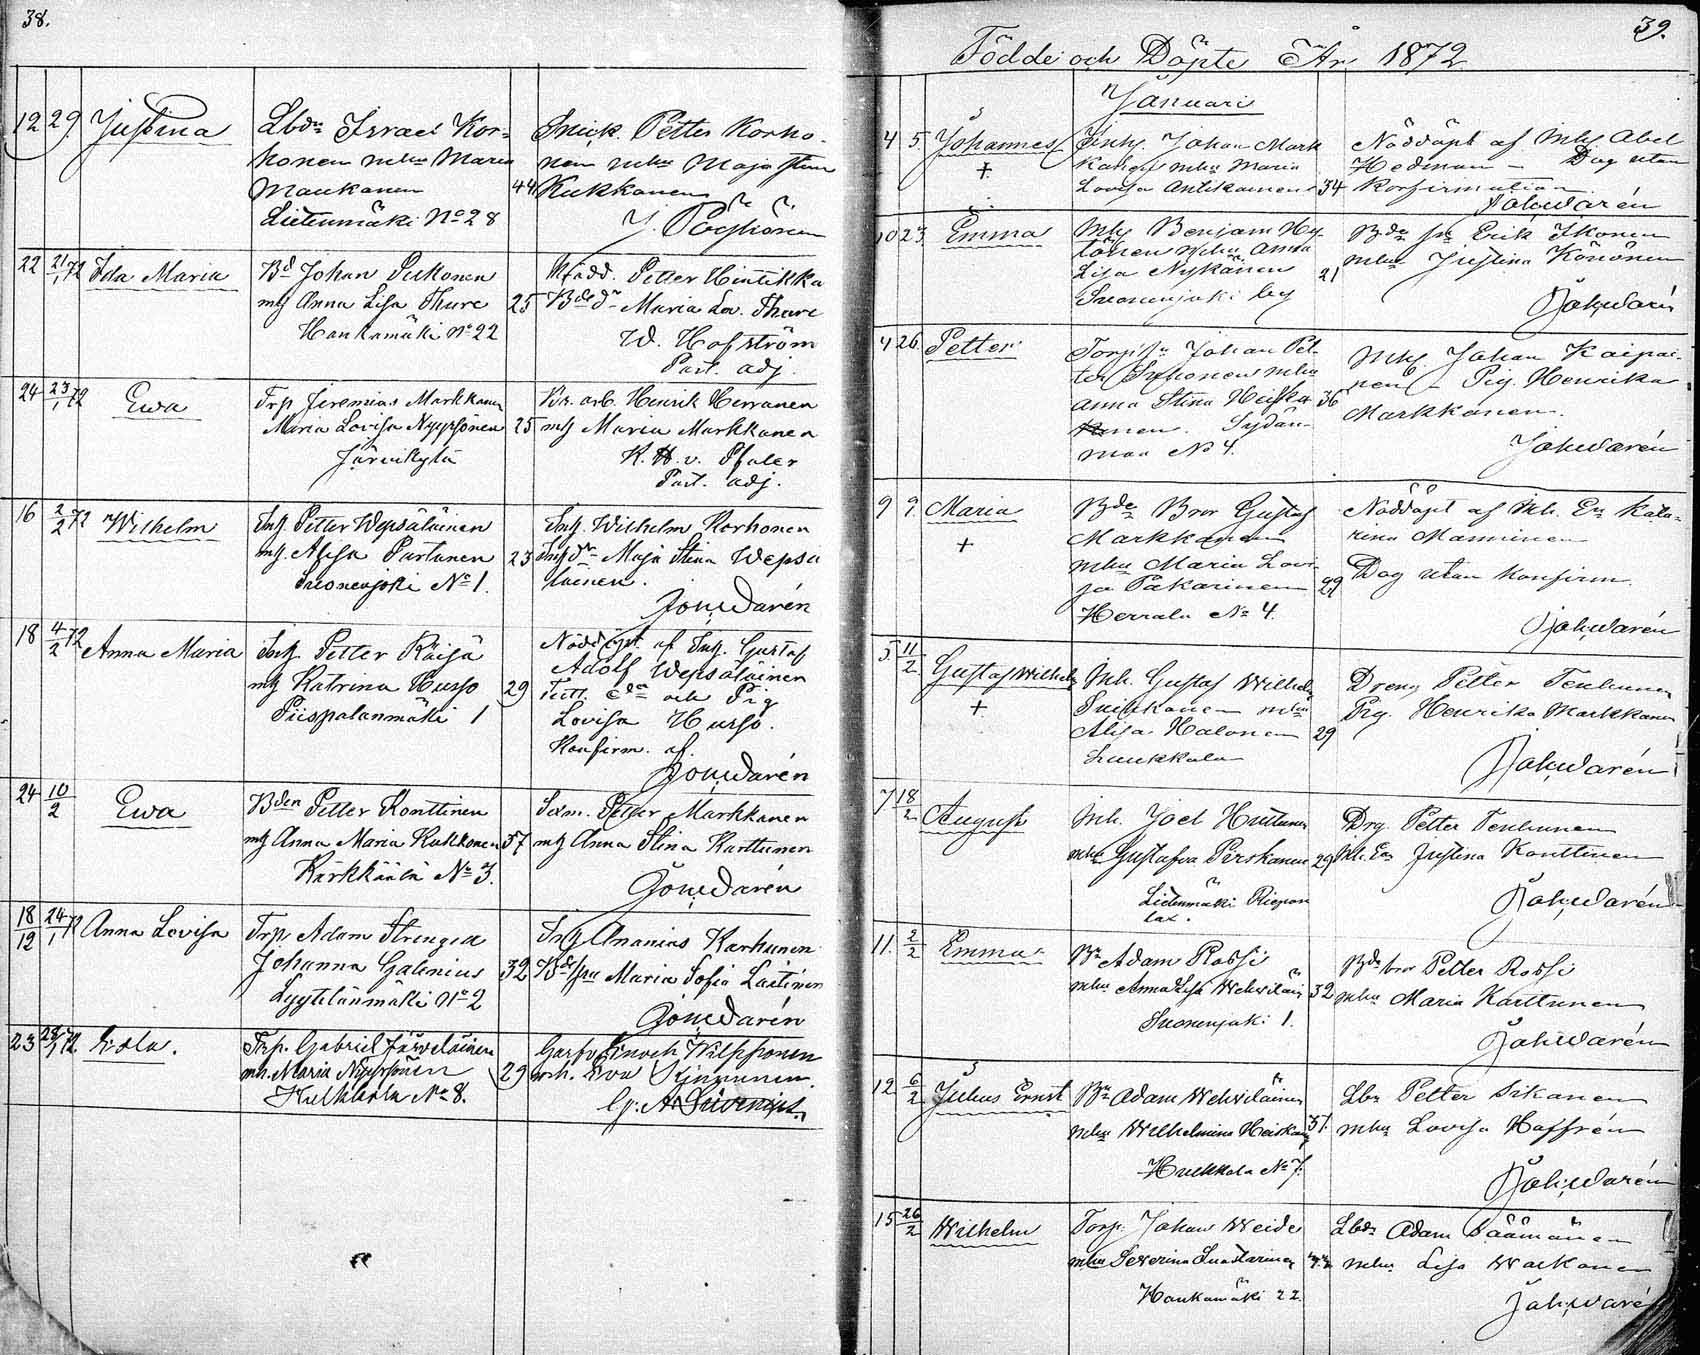 38.
12 29 Justina Lbdn Israel Kor-
honen mhu Maria
Maukanen 44
Lietenmäki No 28
Snick. Petter Korho-
nen mhu Maja Stina
Kukkanen
J. Pöyhönen
22 21/1 72 Ida Maria Bd Johan Pulkonen
mh Anna Lisa Thure 25
Hankamäki No 22
Nödd. Petter Hintikka
Bdedr Maria Lov. Thure
W. Hofström
Past. adj.
24 23/1 72 Ewa Trp Jeremias Markkanen
Maria Lovisa Nyyssönen 25
Järvikylä
Kr. arb. Henrik Herranen
mh Maria Markkanen
K. H. v. Pfaler
Past. adj.
16 2/2 72 Wilhelm Inh Petter Wepsäläinen
mh. Alisa Partanen 23
Suonenjoki No 1.
Inh. Wilhelm Korhonen
Inhdr Maja Stina Wepsä
läinen.
Joh. Warén
18 4/2 72 Anna Maria Inh. Petter Räisä
mh Katrina Husso 29
Piispalanmäki 1
Nöddöpt af Inh. Gustaf
Adolf Wepsäläinen
och Pig
Lovisa Husso.
Konfirm. af
Joh. Warén
24 10/2 Ewa Bden Petter Konttinen
mh Anna Maria Kukkonen 37
Kärkkäälä No 3.
Petter Markkanen
mh Anna Stina Karttunen
Joh. Warén
18/12 24/1 72 Anna Lovisa Trp Adam Strengell
Johanna Galenius 32
Lyytilänmäki No 2
Inh Ananias Karhunen
Maria Sofia Laitinen
Joh. Warén
23 28/1 72. Trp. Gabriel Järveläinen
mh. Maria Nyyssönen 29
No 8.
Enoch Wilpponen
och. Eva
39.
Födde och Döpte År 1872
Januari
4 5. Johannes + Inh. Johan Mark
kanen mhu Maria
Lovisa Antikainen 34
Nöddöpt af Inh. Abel
Hedman - Dag utan
Konfirmation.
Joh. Warén
10 23. Emma Inh Benjam Hy-
tönen mhu Anna
Lisa Nykänen 21
Suonenjoki by
Bde sn Erik Ikonen
mhu Justina Könönen
Joh. Warén
4 26. Petter Torpsn Johan Pet-
ter Suhonen mhu
Anna Stina Heiska 36
nen. Sydän-
maa No 4.
Inh. Johan Kaipai-
nen - Pig. Henrika
Markkanen.
Joh. Warén
9 9. Maria + Bde Bror Gustaf
Markkanen
mhu Maria Lovi-
sa Pakarinen 29
Herrala No 4.
Nöddöpt af Inh. En Kata-
rina Manninen
Dag utan konfirm.
Joh. Warén
5. 11/2 Gustaf Wilhelm + Inh. Gustaf Wilhelm
mhu
Alisa Halonen 29
Luukkala
Dreng Petter Tenhunen
Pig. Henrika Markkanen
Joh. Warén
7 18/2 August Inh. Joel Huttunen
mhu Gustafva Pirskanen 29
Lietenmäki
Drg. Petter Tenhunen
Inh. En Justina Konttinen
Joh. Warén
11. 2/2 Emma Bn Adam Rossi
mhu Anna Lisa Wehviläin 32
Suonenjoki 1.
Bde bror Petter Rossi
mhu Maria Karttunen
Joh. Warén
12 6/2 Julius Ernst Bn Adam Wehviläinen
mhu Wilhelmina Heiskanen 37.
Hulkkola No 7.
Lbn Petter Sikanen
mhu Lovisa Hoffrén
Joh. Warén
15 26/2 Wilhelm Torp. Johan Weide
mhu Severina
Hankamäki 22.
Lbdn Adam Säämänen
mhu Lisa Waikonen
Joh. Warén